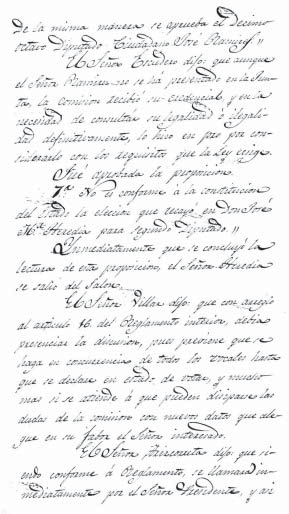 de la misma manera se aprueba el Decimo
octavo Diputado Ciudadano José Ramires.,,
El Señor Escudero dijo: que aunque
el Señor Ramires no se há presentado en la Jun-
ta, la comision recibió su credencial, y en la
necesidad de consultar su legalidad o ilegali-
dad definitivamente, lo hizo en pro por con-
siderarlo con los requisitos que la Ley exige.
Fué aprobada la proposicion.
7.ª No es conforme a la constitucion
del Estado la eleccion que recayó en Don José
M.ª Heredia para segundo Diputado.,,
Inmediatamente que se concluyó la
lectura de esta proposicion, el Señor Heredia
se salio del Salon.
El Señor Villar dijo: que con arreglo
al articulo 16. del Reglamento interior, debia
presenciar la discusion, pues previene que se
haga en concurrencia de todos los vocales hasta
que se declare en estado de votar, y mucho
mas si se atiende á que pueden disiparse las
dudas de la comision con nuevos datos que ale-
gue en su fabor el Señor interesado.
El Señor dijo: que si-
endo conforme á Reglamento, se llamará in-
mediatamente por el Señor Presidente, y asi